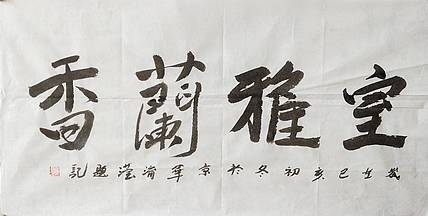 室雅蘭香
歲在己亥初冬於京華濟瀅題記